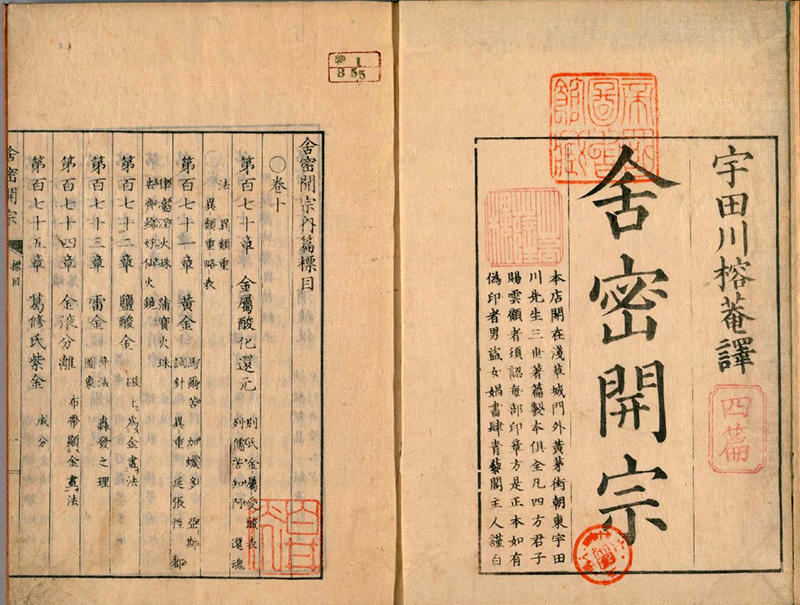 宇田川榕菴譯
舎密開宗
四篇
本店開在淺草城門外黃茅街朝東宇田
川先生三世著篇製本俱全凡四方君子
賜雲顧者須認每部印章方是正本如有
偽印者男盜女娼書肆青藜閣主人謹白
1
855
舎密開宗內篇標目
〇卷十
第百七十章 金屬酸化還元 別氏金屬愛酸表
還魂
法 異類重
異類重略表
第百七十一章 黃金 馬爾苦 加蠟多 亞斯
試針 異重 延張性
火珠 蒲賓火珠
仙火鏡
第百七十二章 鹽酸金 為金畫法
第百七十三章 雷金 轟發之理
圖象
第百七十四章 金液分離 布帶顯金畫法
第百七十五章 葛修氏紫金 成分
舎密開宗 標目